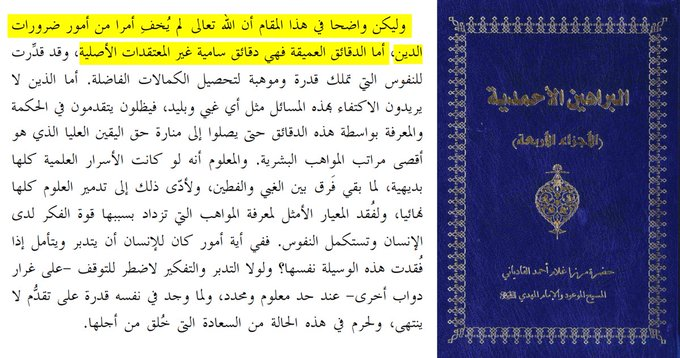 وليكن واضحا في هذا المقام أن الله تعالى لم يُخفِ أمرا من أمور ضرورات
الدين، أما الدقائق العميقة فهي دقائق سامية غير المعتقدات الأصلية، وقد قدِّرت
للنفوس التي تملك قدرة وموهبة لتحصيل الكمالات الفاضلة. أما الذين لا
يريدون الاكتفاء بهذه المسائل مثل أي غبي وبليد، فيظلون يتقدمون في الحكمة
والمعرفة بواسطة هذه الدقائق حتى يصلوا إلى منارة حق اليقين العليا الذي هو
أقصى مراتب المواهب البشرية. والمعلوم أنه لو كانت الأسرار العلمية كلها
بديهية، لما بقي فَرق بين الغبي والفطين، ولأدّى ذلك إلى تدمير العلوم كلها
نهائيا، ولفُقد المعيار الأمثل لمعرفة المواهب التي تزداد بسببها قوة الفكر لدى
الإنسان وتستكمل النفوس. ففي أية أمور كان للإنسان أن يتدبر ويتأمل إذا
فُقدت هذه الوسيلة نفسها؟ ولولا التدبر والتفكير لاضطر للتوقف -على غرار
دواب أخرى- عند حد معلوم ومحدد، ولما وجد في نفسه قدرة على تقدُّم لا
ينتهي، ولحرم في هذه الحالة من السعادة التي خُلق من أجلها.
البراهين الأحمدية
(الأجزاء الأربعة)
حضرة مرزا غلام أحمد القادياني
المسيح الموعود والإمام المهدي